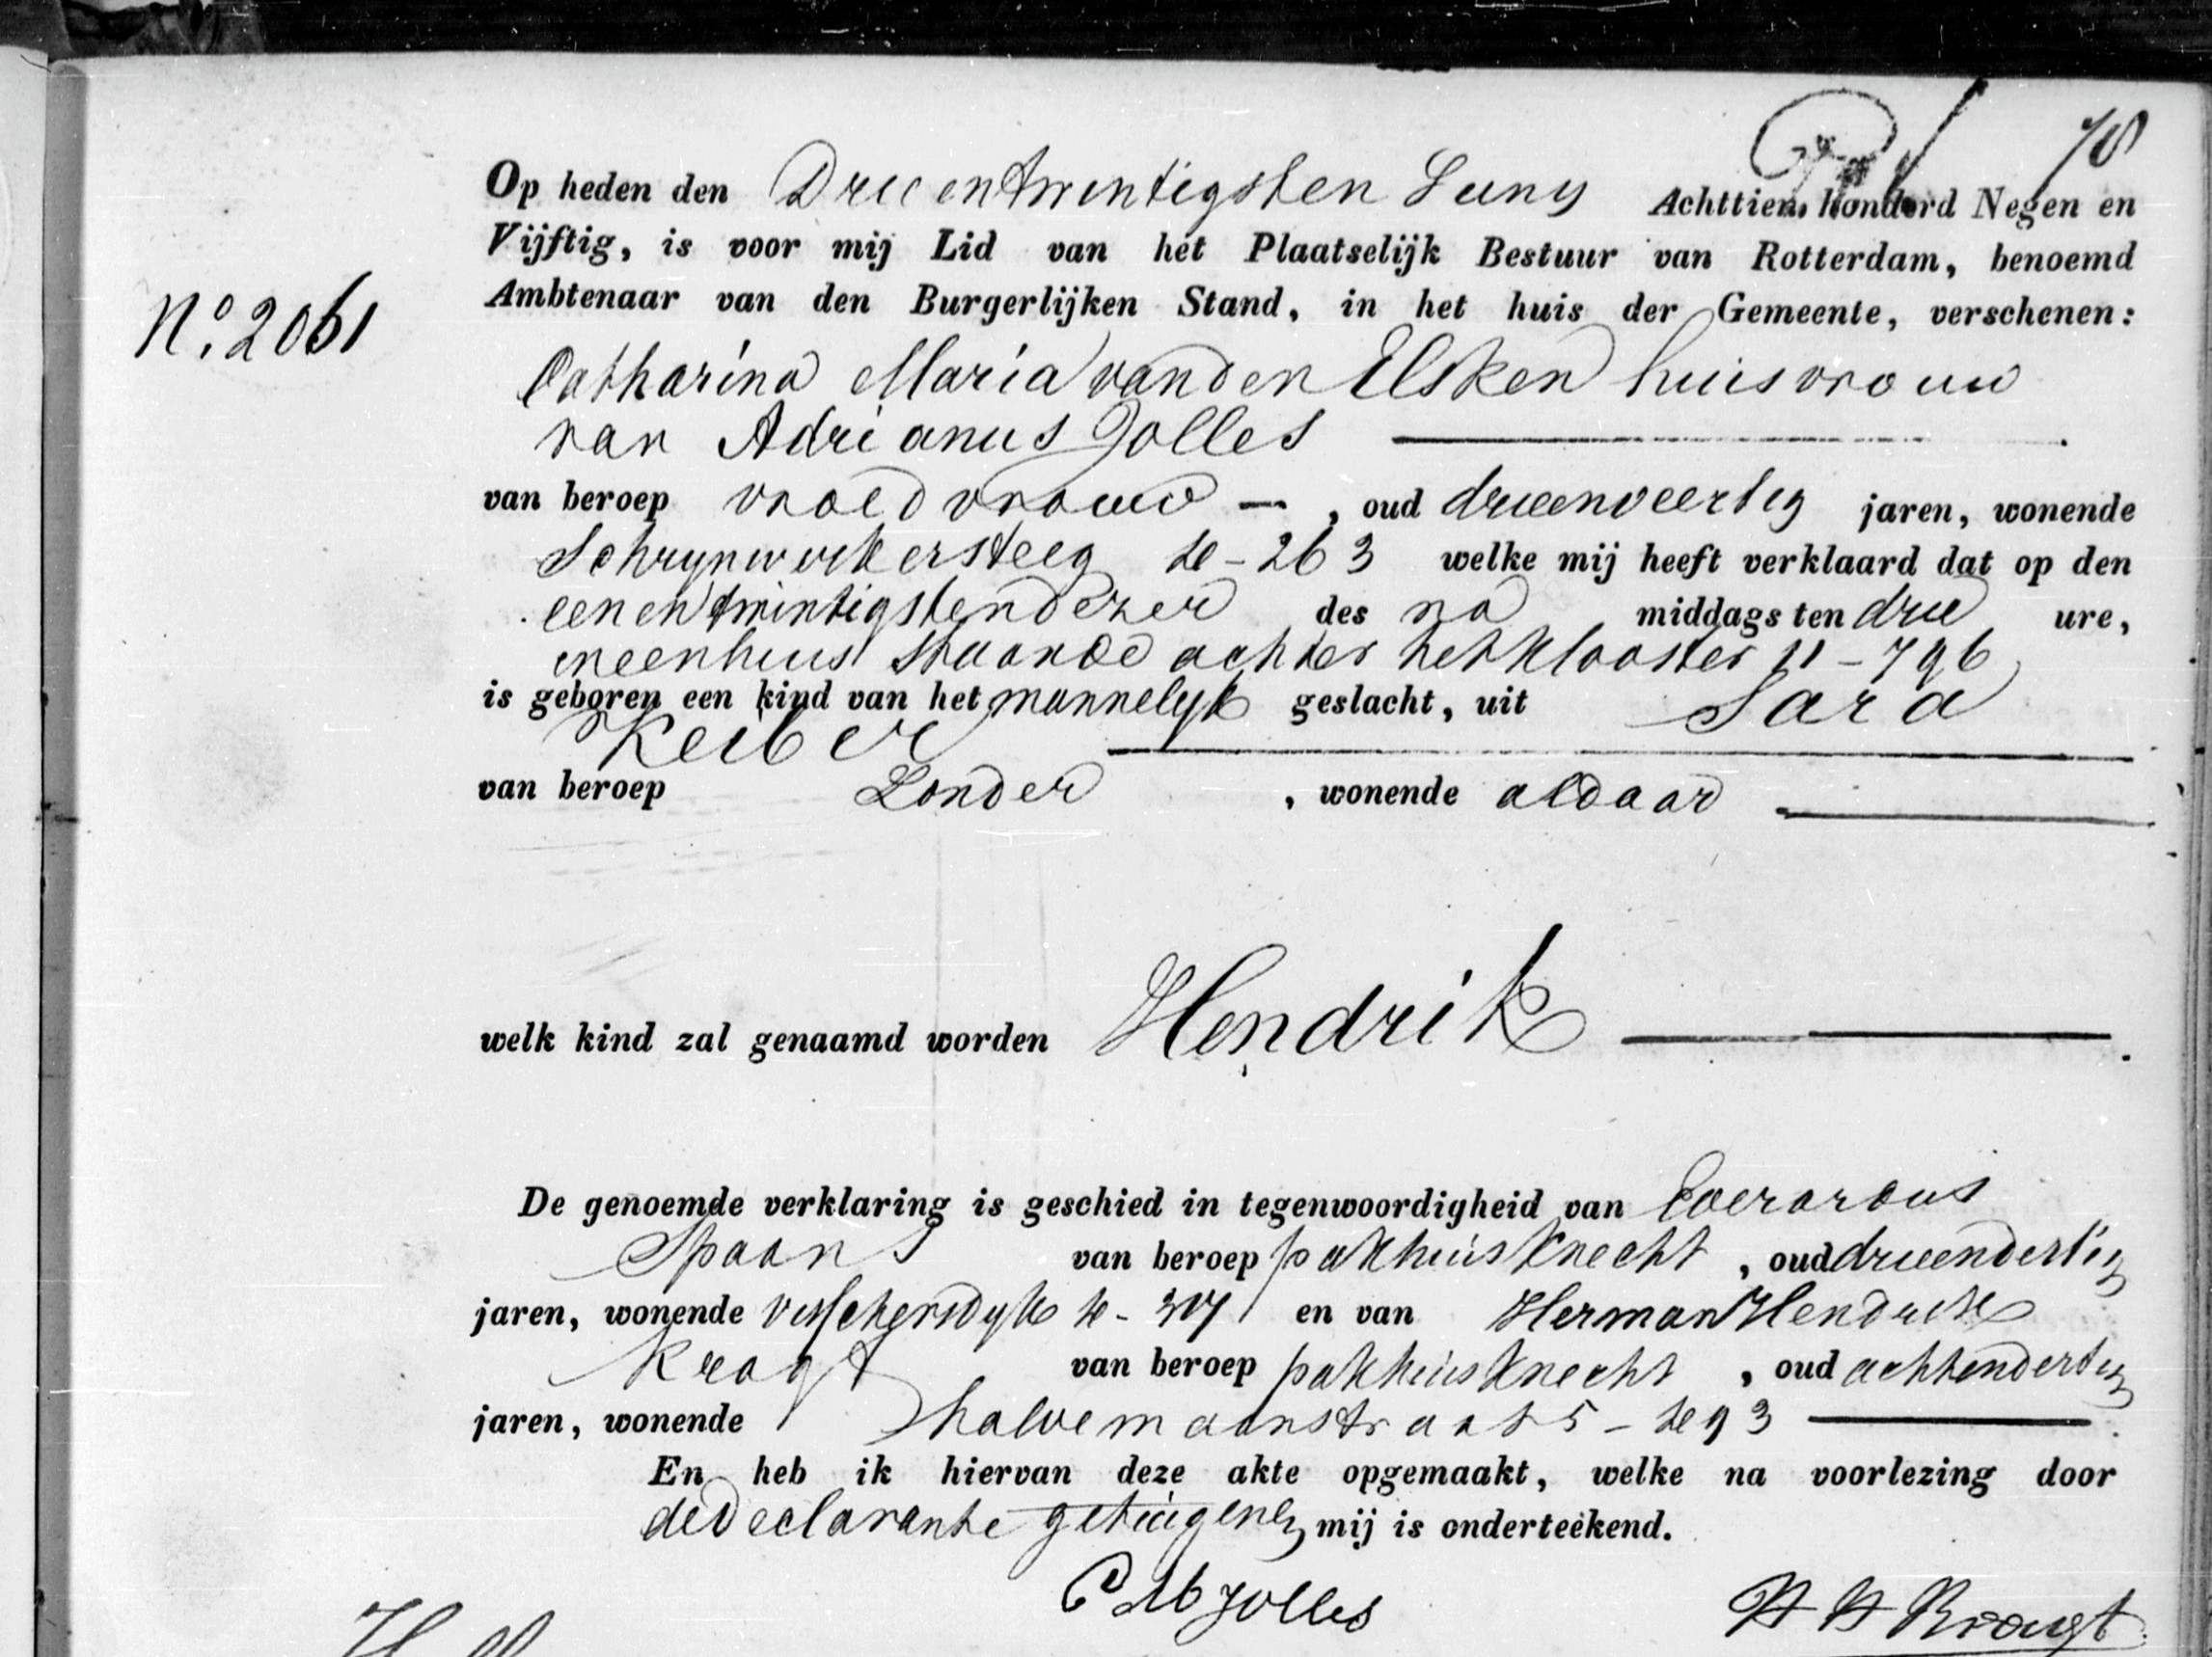 78
Op heden den Drie en twintigsten Juny Achttien honderd Negen en
Vijftig, is voor mij Lid van het Plaatselijk Bestuur van Rotterdam, benoemd
Ambtenaar van den Burgerlijken Stand, in het huis der Gemeente, verschenen:
No. 2061
Catharina Maria van den Elsken huisvrouw
van Adrianus Jolles
van beroep vroedvrouw —, oud drieenveertig jaren, wonende
Schrynwerkersteeg 263 welke mij heeft verklaard dat op den
een en twintigsten dezer des na middags ten drie ure,
in een huis staande achter het klooster 11-796
is geboren een kind van het mannelyk geslacht, uit Sara
Keiber
van beroep Zonder, wonende aldaar
welk kind zal genaamd worden Hendrik.
De genoemde verklaring is geschied in tegenwoordigheid van Everardus
Spaans van beroep pakhuisknecht, oud drieendertig
jaren, wonende visschersdyk en van Herman Hendrik
Kragt van beroep pakhuisknecht, oud achtendertig
jaren, wonende halvemaanstraat
En heb ik hiervan deze akte opgemaakt, welke na voorlezing door
de declarante getuigen en mij is onderteekend.
C M Jolles
H H Kragt